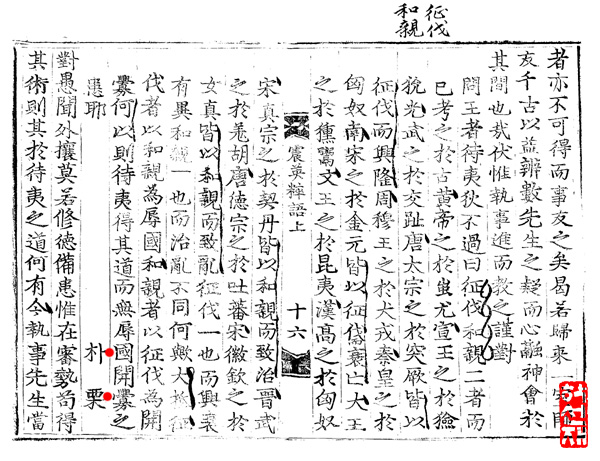 征伐
和親
者亦不可得而事友之矣曷若歸來一室師
友千古以益辨數先生之疑而心融神會於
其間也哉伏惟執事進而敎之謹對
問王者待夷狄不過曰征伐和親二者而
已考之於古黃帝之於蚩尤宣王之於獫
狁光武之於交趾唐太宗之於突厥皆以
征伐而興隆周穆王之於犬戎秦皇之於
匈奴南宋之於金元皆以征伐衰亡大王
之於獯鬻文王之於昆夷漢高之於匈奴
震英粹語上 十六
宋真宗之於契丹皆以和親而致治晉武
之於羌胡唐德宗之於吐蕃宋徽欽之於
女真皆以和親而致亂征伐一也而興衰
有異和親一也而治亂不同何歟大抵征
伐者以和親為辱國和親者以征伐為開
釁何以則待夷得其道而無辱國開釁之
患耶 朴 栗
對愚聞外攘莫若修德備患惟在審勢苟得
其術則其於待夷之道何有今執事先生當